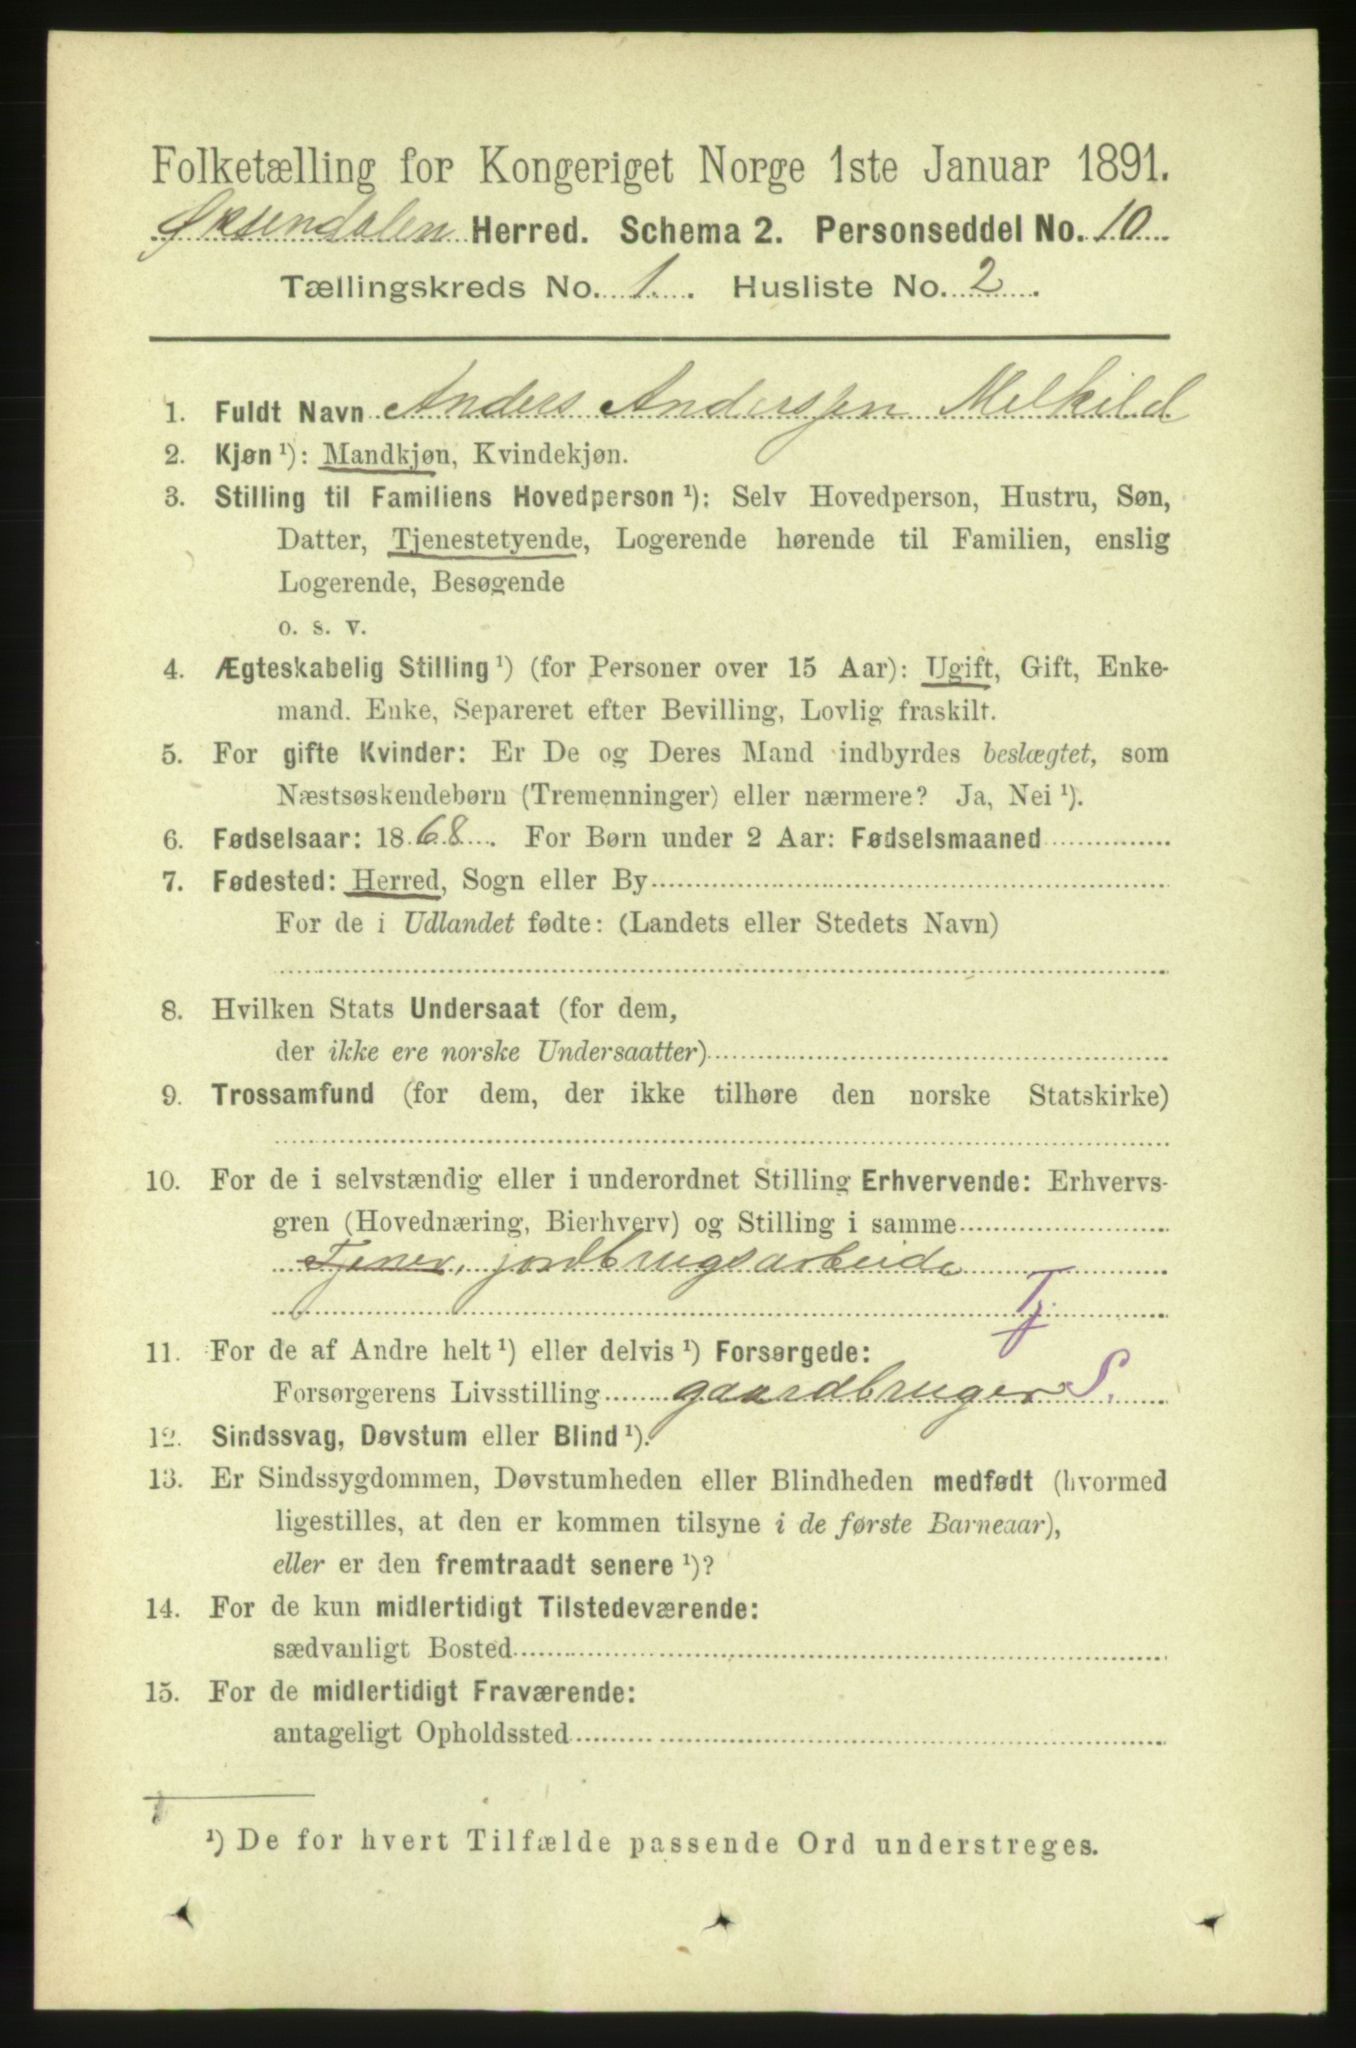 Folketælling for Kongeriget Norge 1ste Januar 1891.
Øksendalen Herred. Schema 2. Personseddel No. 10
Tællingskreds No. 1. Husliste No. 2.
1. Fuldt Navn Anders Anderssen Melkild
2. Kjøn ¹): Mandkjøn, Kvindekjøn.
3. Stilling til Familiens Hovedperson ¹): Selv Hovedperson, Hustru, Søn,
Datter, Tjenestetyende, Logerende hørende til Familien, enslig
Logerende, Besøgende
o. s. v.
4. Ægteskabelig Stilling ¹) (for Personer over 15 Aar): Ugift, Gift, Enke-
mand. Enke, Separeret efter Bevilling, Lovlig fraskilt.
5. For gifte Kvinder: Er De og Deres Mand indbyrdes beslægtet, som
Næstsøskendebørn (Tremenninger) eller nærmere? Ja, Nei ¹).
6. Fødselsaar: 1868. For Børn under 2 Aar: Fødselsmaaned
7. Fødested: Herred, Sogn eller By
For de i Udlandet fødte: (Landets eller Stedets Navn)
8. Hvilken Stats Undersaat (for dem,
der ikke ere norske Undersaatter)
9. Trossamfund (for dem, der ikke tilhøre den norske Statskirke)
10. For de i selvstændig eller i underordnet Stilling Erhvervende: Erhvervs-
gren (Hovednæring, Bierhverv) og Stilling i samme
Tjener, jordbrugsarbeide
Tj
11. For de af Andre helt ¹) eller delvis ¹) Forsørgede:
Forsørgerens Livsstilling gaardbruger S.
12. Sindssvag, Døvstum eller Blind ¹).
13. Er Sindssygdommen, Døvstumheden eller Blindheden medfødt (hvormed
ligestilles, at den er kommen tilsyne i de første Barneaar),
eller er den fremtraadt senere ¹)?
14. For de kun midlertidigt Tilstedeværende:
sædvanligt Bosted
15. For de midlertidigt Fraværende:
antageligt Opholdssted
¹) De for hvert Tilfælde passende Ord understreges.